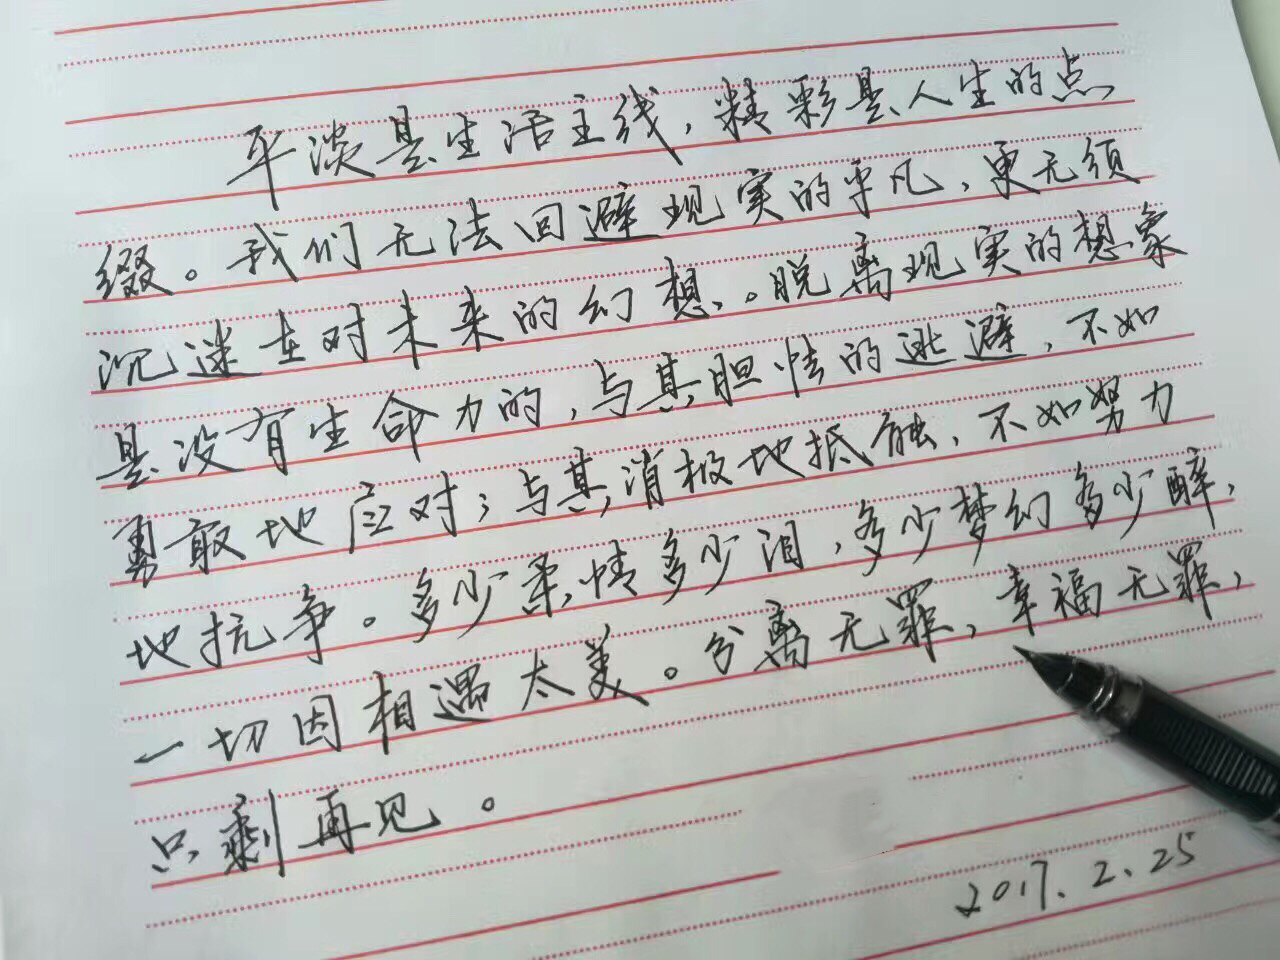 平淡是生活主线，精彩是人生的点
缀。我们无法回避现实的平凡，更无须
沉迷在对未来的幻想。脱离现实的想象
是没有生命力的，与其胆怯的逃避，不如
勇敢地应对；与其消极地抵触，不如努力
地抗争。多少柔情多少泪，多少梦幻多少醉，
一切因相遇太美。分离无罪，幸福无罪，
只剩再见。
2017.2.25